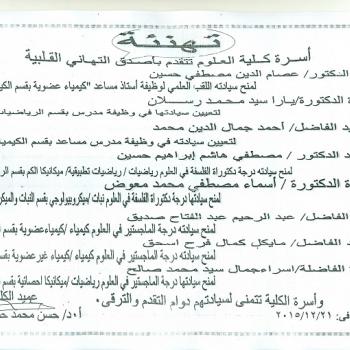 تهنئة
أسرة كلية العلوم تتقدم بأصدق التهانى القلبية
الدكتور/ عصام الدين مصطفى حسين
لمنح سيادته اللقب العلمي لوظيفة أستاذ مساعد "كيمياء عضوية بقسم
ة الدكتورة/ يارا سيد محمد رسلان
لتعيين سيادتها في وظيفة مدرس بقسم الرياضيات
الفاضل/ أحمد جمال الدين محمد
لتعيين سيادته في وظيفة مدرس مساعد بقسم
د الدكتور / مصطفى هاشم إبراهيم حسين
لمنح سيادته درجة دكتوراة الفلسفة في العلوم رياضيات / رياضيات تطبيقية/ ميكانيكا الكم بقسم
ة الدكتورة / أسماء مصطفى محمد معوض
منح سيادتها درجة دكتوراة الفلسفة في العلوم نبات/ميكروبيولوجي بقسم النبات
الفاضل/ عبد الرحيم عبد الفتاح صديق
منح سيادته درجة الماجستير في العلوم كيمياء /كيمياء عضوية بقسم
الفاضل/ مايكل كمال فرج اسحق
منح سيادته درجة الماجستير في العلوم كيمياء /كيمياء غير عضوية بقسم
الفاضلة/ اسراء جمال سيد محمد صالح
منح سيادته درجة الماجستير في العلوم رياضيات /ميكانيكا احصائية بقسم
وأسرة الكلية تتمنى لسيادتهم دوام التقدم والترقى.
عميد
فى: ٢٠١٥/١٢/٢١
أ.د/ حسن محمد